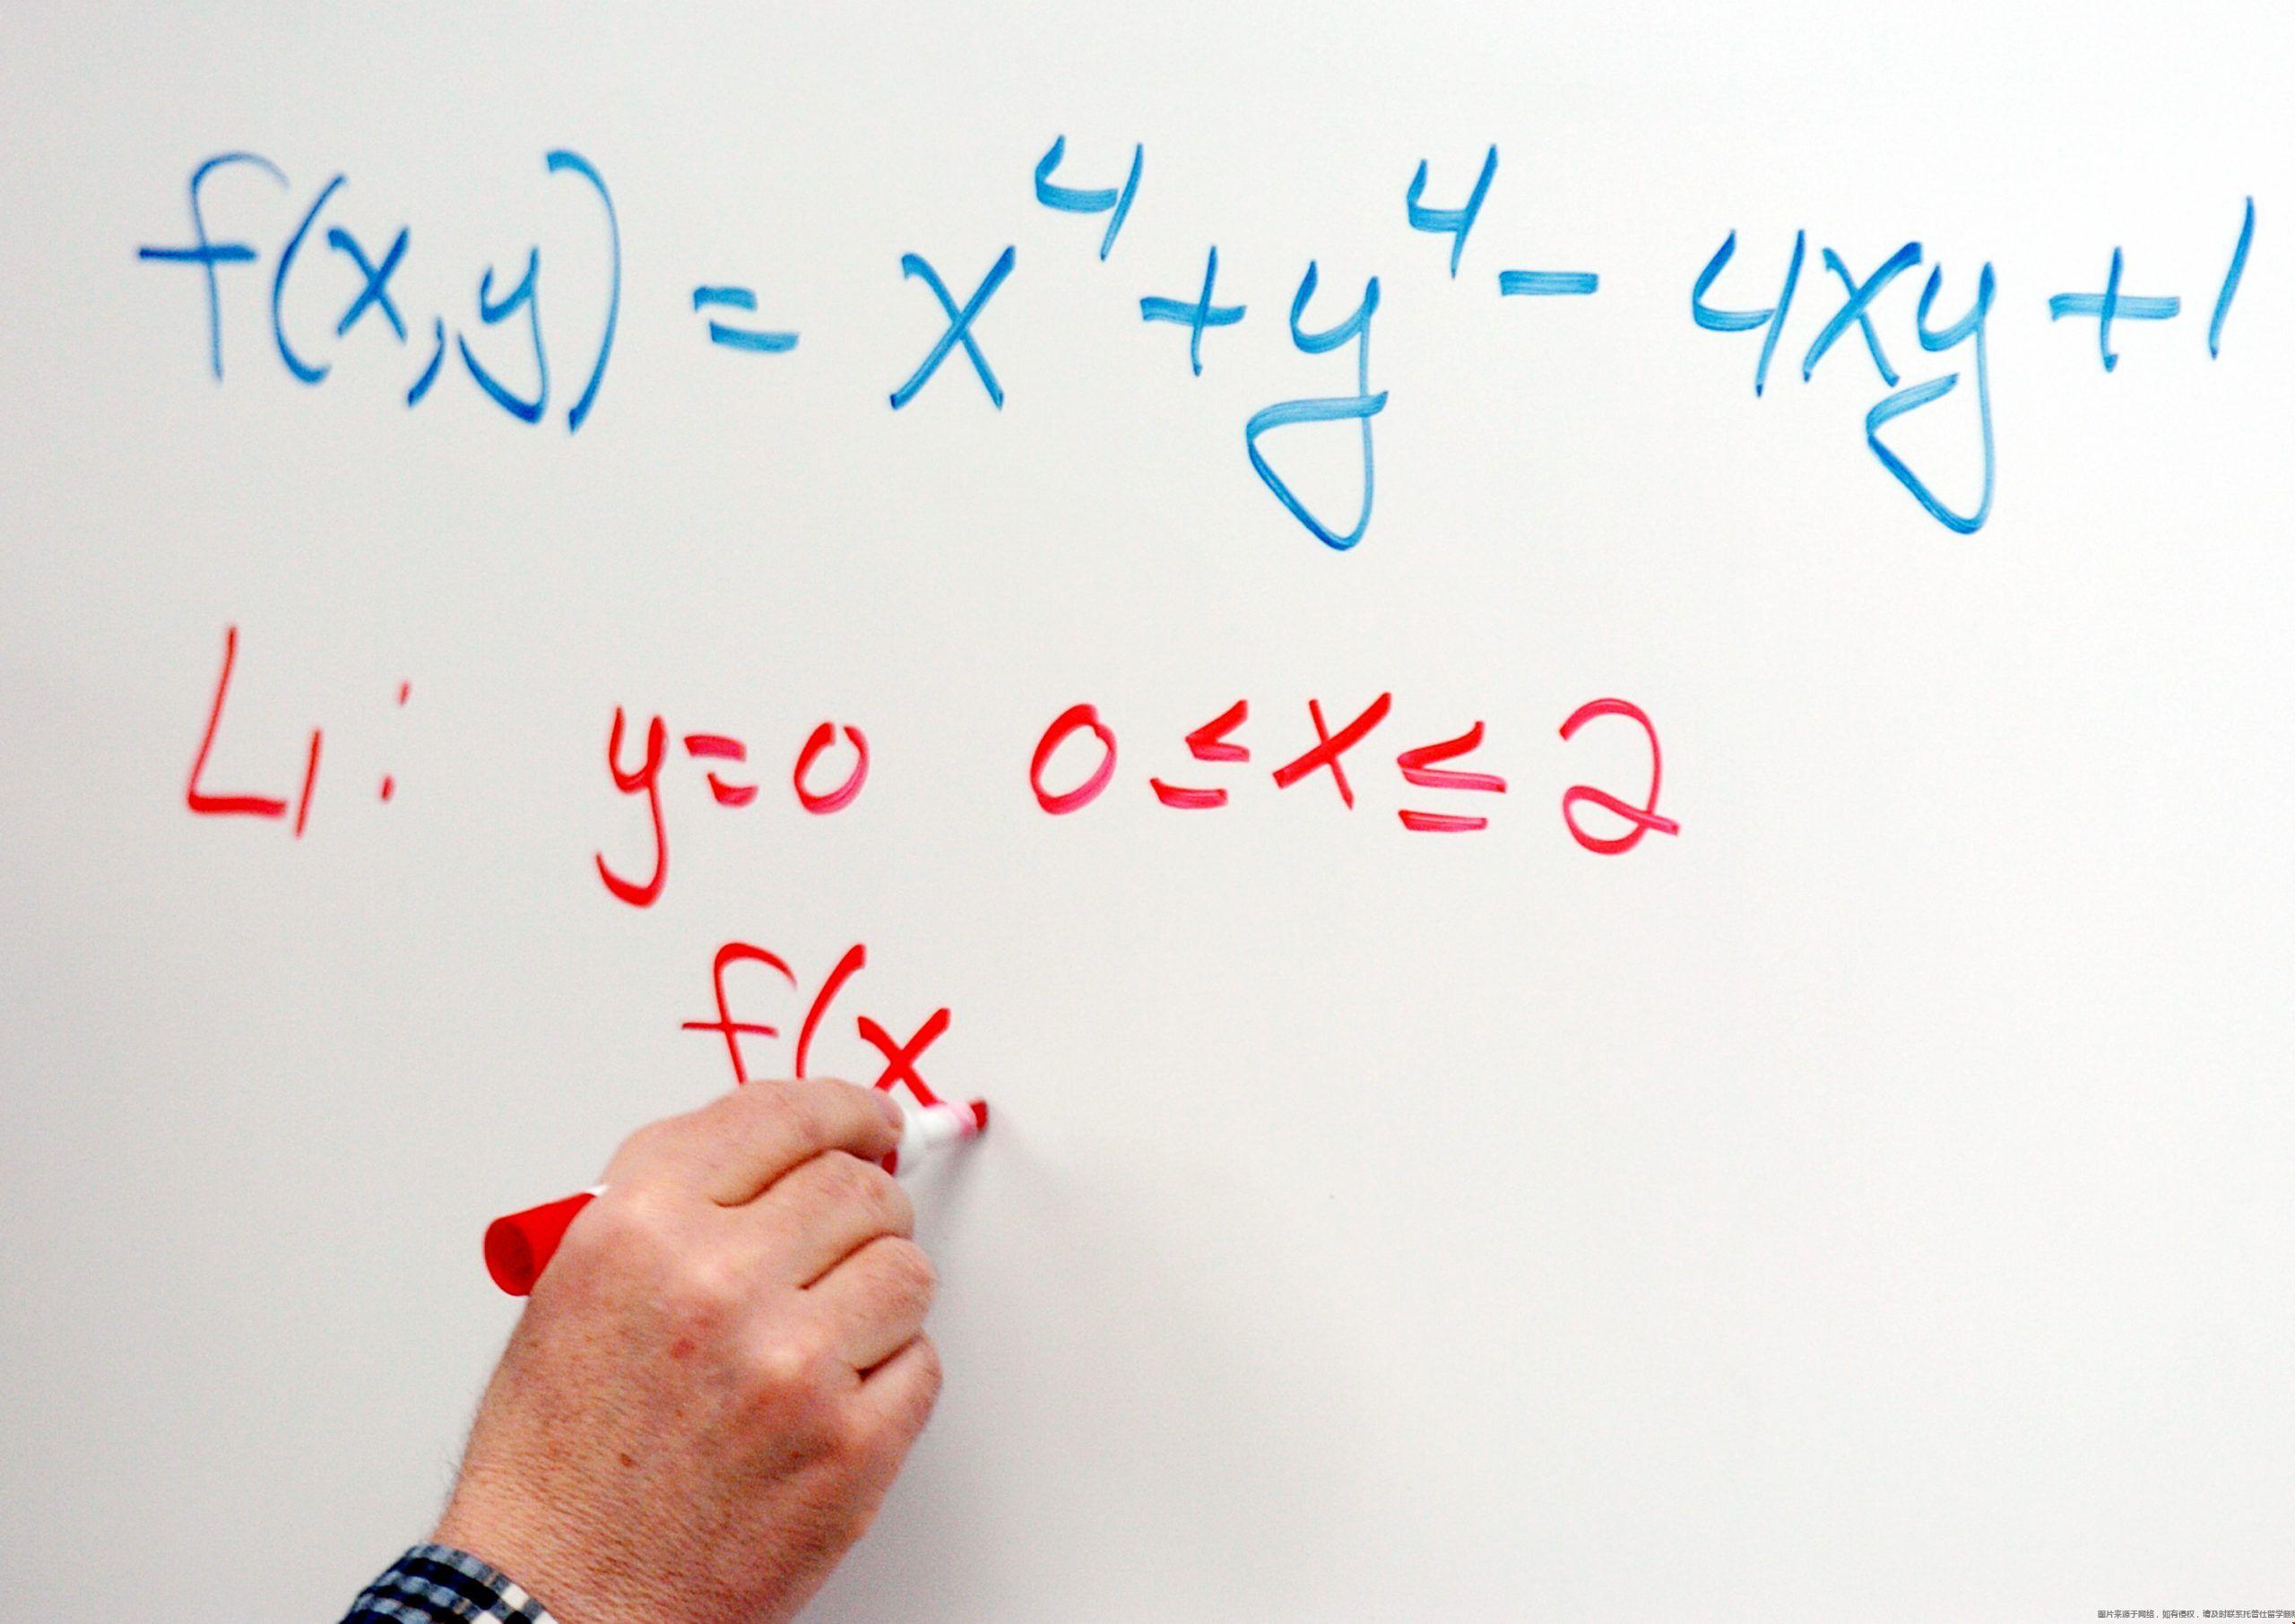 f(x,y) = x⁴+y⁴- 4xy+1
L1: y=0 0≤x≤2
f(x,
图片来源于网络，如有侵权，请及时联系托普仕留学删除